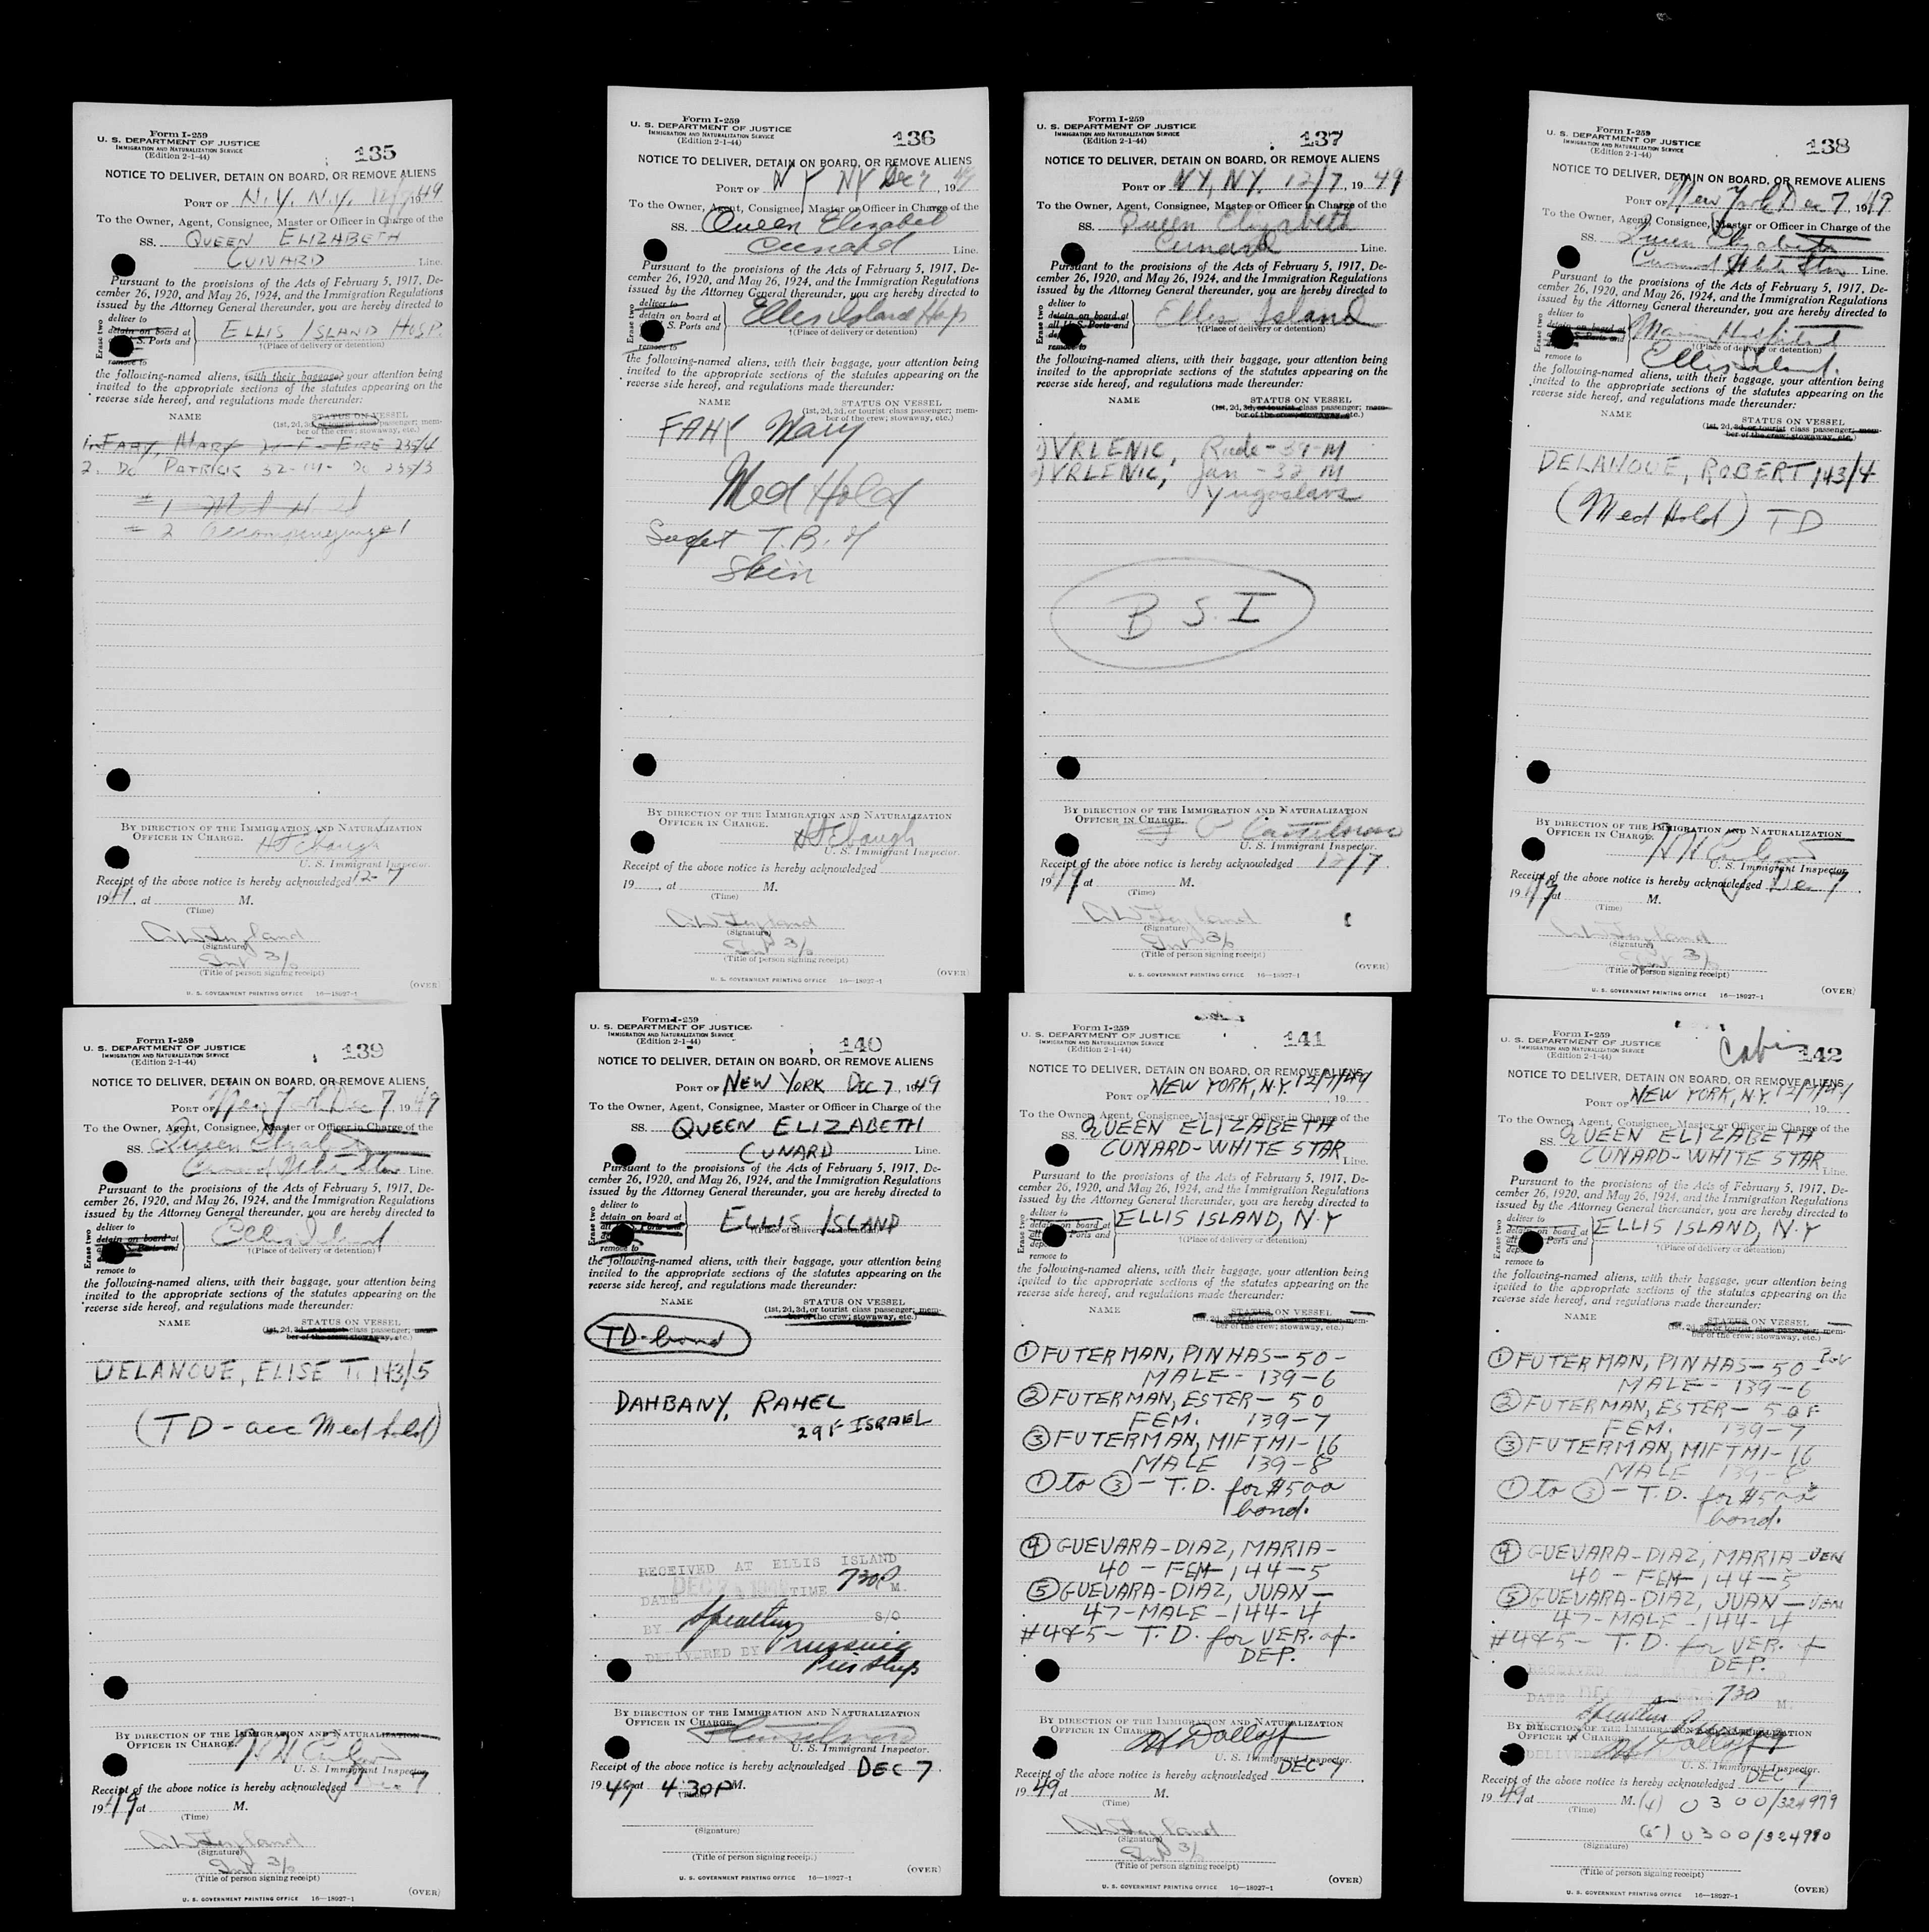 Form I-259
U. S. DEPARTMENT OF JUSTICE
IMMIGRATION AND NATURALIZATION SERVICE
(Edition 2-1-44)
135
NOTICE TO DELIVER, DETAIN ON BOARD, OR REMOVE ALIENS
PORT OF N.Y. N.Y. 1949
To the Owner, Agent, Consignee, Master or Officer in Charge of the
SS. QUEEN ELIZABETH
CUNARD Line.
Pursuant to the provisions of the Acts of February 5, 1917, De-
cember 26, 1920, and May 26, 1924, and the Immigration Regulations
issued by the Attorney General thereunder, you are hereby directed to
Erase two
deliver to
detain on board at
S. Ports and
remove to
ELLIS ISLAND HOSP.
(Place of delivery or detention)
the following-named aliens, with their baggage, your attention being
invited to the appropriate sections of the statutes appearing on the
reverse side hereof, and regulations made thereunder:
NAME STATUS ON VESSEL
(1st, 2d, 3d, or tourist class passenger; mem-
ber of the crew; stowaway, etc.)
1. FAHY, MARY F- EIRE 235/4
2. Do PATRICK 32-M- Do 235/3
#1
#2 accompanying #1
BY DIRECTION OF THE IMMIGRATION AND NATURALIZATION
OFFICER IN CHARGE.
U. S. Immigrant Inspector.
Receipt of the above notice is hereby acknowledged 12-7
1949, at M.
(Time)
(Signature)
Int 3/0
(Title of person signing receipt)
U. S. GOVERNMENT PRINTING OFFICE 16—18927-1
(OVER)
Form I-259
U. S. DEPARTMENT OF JUSTICE
IMMIGRATION AND NATURALIZATION SERVICE
(Edition 2-1-44)
136
NOTICE TO DELIVER, DETAIN ON BOARD, OR REMOVE ALIENS
PORT OF N Y NY Dec 7, 1949
To the Owner, Agent, Consignee, Master or Officer in Charge of the
SS. Queen Elizabet
Cunard Line.
Pursuant to the provisions of the Acts of February 5, 1917, De-
cember 26, 1920, and May 26, 1924, and the Immigration Regulations
issued by the Attorney General thereunder, you are hereby directed to
Erase two
deliver to
detain on board at
S. Ports and
remove to
Ellis Island Hsp
(Place of delivery or detention)
the following-named aliens, with their baggage, your attention being
invited to the appropriate sections of the statutes appearing on the
reverse side hereof, and regulations made thereunder:
NAME STATUS ON VESSEL
(1st, 2d, 3d, or tourist class passenger; mem-
ber of the crew; stowaway, etc.)
FAHY Mary
Med Hold
T.B. of
Skin
BY DIRECTION OF THE IMMIGRATION AND NATURALIZATION
OFFICER IN CHARGE.
U. S. Immigrant Inspector.
Receipt of the above notice is hereby acknowledged
19 , at M.
(Time)
(Signature)
Int 3/0
(Title of person signing receipt)
U. S. GOVERNMENT PRINTING OFFICE 16—18927-1
(OVER)
Form I-259
U. S. DEPARTMENT OF JUSTICE
IMMIGRATION AND NATURALIZATION SERVICE
(Edition 2-1-44)
137
NOTICE TO DELIVER, DETAIN ON BOARD, OR REMOVE ALIENS
PORT OF NY, NY. 12/7, 1949
To the Owner, Agent, Consignee, Master or Officer in Charge of the
SS. Queen Elizabeth
Cunard Line.
Pursuant to the provisions of the Acts of February 5, 1917, De-
cember 26, 1920, and May 26, 1924, and the Immigration Regulations
issued by the Attorney General thereunder, you are hereby directed to
Erase two
deliver to
detain on board at
all U. S. Ports and
remove to
Ellis Island
(Place of delivery or detention)
the following-named aliens, with their baggage, your attention being
invited to the appropriate sections of the statutes appearing on the
reverse side hereof, and regulations made thereunder:
NAME STATUS ON VESSEL
(1st, 2d, 3d, or tourist class passenger; mem-
ber of the crew; stowaway, etc.)
1) VRLENIC, Rude - 39-M
2) VRLENIC, Jan - 32 M
Yugoslavs
B S. I
BY DIRECTION OF THE IMMIGRATION AND NATURALIZATION
OFFICER IN CHARGE.
U. S. Immigrant Inspector.
Receipt of the above notice is hereby acknowledged 12/7
1949 at M.
(Time)
(Signature)
Int 3/0
(Title of person signing receipt)
U. S. GOVERNMENT PRINTING OFFICE 16—18927-1
(OVER)
Form I-259
U. S. DEPARTMENT OF JUSTICE
IMMIGRATION AND NATURALIZATION SERVICE
(Edition 2-1-44)
138
NOTICE TO DELIVER, DETAIN ON BOARD, OR REMOVE ALIENS
PORT OF New York Dec 7, 1949
To the Owner, Agent, Consignee, Master or Officer in Charge of the
SS. Queen Elizabeth
Cunard White Star Line.
Pursuant to the provisions of the Acts of February 5, 1917, De-
cember 26, 1920, and May 26, 1924, and the Immigration Regulations
issued by the Attorney General thereunder, you are hereby directed to
Erase two
deliver to
detain on board at
S. Ports and
remove to
Marine Hospital
(Place of delivery or detention)
Ellis Island.
the following-named aliens, with their baggage, your attention being
invited to the appropriate sections of the statutes appearing on the
reverse side hereof, and regulations made thereunder:
NAME STATUS ON VESSEL
(1st, 2d, 3d, or tourist class passenger; mem-
ber of the crew; stowaway, etc.)
DELANOUE, ROBERT 143/4
(Med Hold) TD
BY DIRECTION OF THE IMMIGRATION AND NATURALIZATION
OFFICER IN CHARGE.
U. S. Immigrant Inspector
Receipt of the above notice is hereby acknowledged Dec 7
1949 at M.
(Time)
(Signature)
Int 3/0
(Title of person signing receipt)
U. S. GOVERNMENT PRINTING OFFICE 16—18927-1
(OVER)
Form I-259
U. S. DEPARTMENT OF JUSTICE
IMMIGRATION AND NATURALIZATION SERVICE
(Edition 2-1-44)
139
NOTICE TO DELIVER, DETAIN ON BOARD, OR REMOVE ALIENS
PORT OF New York Dec 7 1949
To the Owner, Agent, Consignee, Master or Officer in Charge of the
SS. Queen Elizabeth
Cunard White Star Line.
Pursuant to the provisions of the Acts of February 5, 1917, De-
cember 26, 1920, and May 26, 1924, and the Immigration Regulations
issued by the Attorney General thereunder, you are hereby directed to
Erase two
deliver to
detain on board at
Ports and
remove to
Ellis Island
(Place of delivery or detention)
the following-named aliens, with their baggage, your attention being
invited to the appropriate sections of the statutes appearing on the
reverse side hereof, and regulations made thereunder:
NAME STATUS ON VESSEL
(1st, 2d, 3d, or tourist class passenger; mem-
ber of the crew; stowaway, etc.)
DELANOUE, ELISE T. 143/5
(TD - acc Med hold)
BY DIRECTION OF THE IMMIGRATION AND NATURALIZATION
OFFICER IN CHARGE.
U. S. Immigrant Inspector
Receipt of the above notice is hereby acknowledged Dec 7
1949 at M.
(Time)
(Signature)
Int 3/0
(Title of person signing receipt)
U. S. GOVERNMENT PRINTING OFFICE 16—18927-1
(OVER)
Form I-259
U. S. DEPARTMENT OF JUSTICE
IMMIGRATION AND NATURALIZATION SERVICE
(Edition 2-1-44)
140
NOTICE TO DELIVER, DETAIN ON BOARD, OR REMOVE ALIENS
PORT OF NEW YORK DEC 7, 1949
To the Owner, Agent, Consignee, Master or Officer in Charge of the
SS. QUEEN ELIZABETH
CUNARD Line.
Pursuant to the provisions of the Acts of February 5, 1917, De-
cember 26, 1920, and May 26, 1924, and the Immigration Regulations
issued by the Attorney General thereunder, you are hereby directed to
Erase two
deliver to
detain on board at
remove to
ELLIS ISLAND
(Place of delivery or detention)
the following-named aliens, with their baggage, your attention being
invited to the appropriate sections of the statutes appearing on the
reverse side hereof, and regulations made thereunder:
NAME STATUS ON VESSEL
(1st, 2d, 3d, or tourist class passenger; mem-
ber of the crew; stowaway, etc.)
TD-bond
DAHBANY, RAHEL
29 F ISRAEL
RECEIVED AT ELLIS ISLAND
DATE DEC TIME 730P M.
BY S/O
DELIVERED BY
BY DIRECTION OF THE IMMIGRATION AND NATURALIZATION
OFFICER IN CHARGE.
U. S. Immigrant Inspector.
Receipt of the above notice is hereby acknowledged DEC 7
1949 at 4:30 P M.
(Time)
(Signature)
(Title of person signing receipt)
U. S. GOVERNMENT PRINTING OFFICE 16—18927-1
(OVER)
Form I-259
U. S. DEPARTMENT OF JUSTICE
IMMIGRATION AND NATURALIZATION SERVICE
(Edition 2-1-44)
141
NOTICE TO DELIVER, DETAIN ON BOARD, OR REMOVE ALIENS
PORT OF NEW YORK, N.Y. 12/7/49, 19
To the Owner, Agent, Consignee, Master or Officer in Charge of the
SS. QUEEN ELIZABETH
CUNARD-WHITE STAR Line.
Pursuant to the provisions of the Acts of February 5, 1917, De-
cember 26, 1920, and May 26, 1924, and the Immigration Regulations
issued by the Attorney General thereunder, you are hereby directed to
Erase two
deliver to
detain on board at
Ports and
remove to
ELLIS ISLAND, N.Y
(Place of delivery or detention)
the following-named aliens, with their baggage, your attention being
invited to the appropriate sections of the statutes appearing on the
reverse side hereof, and regulations made thereunder:
NAME STATUS ON VESSEL
(1st, 2d, 3d, or tourist class passenger; mem-
ber of the crew; stowaway, etc.)
① FUTERMAN, PINHAS-50-
MALE- 139-6
② FUTERMAN, ESTER- 50
FEM. 139-7
③ FUTERMAN, MIFTMI-16
MALE 139-8
① to ③ - T.D. for $500
bond.
④ GUEVARA-DIAZ, MARIA-
40 - FEM-144-5
⑤ GUEVARA-DIAZ, JUAN-
47-MALE-144-4
#4&5- T.D. for VER. of
DEP.
BY DIRECTION OF THE IMMIGRATION AND NATURALIZATION
OFFICER IN CHARGE
U. S. Immigrant Inspector.
Receipt of the above notice is hereby acknowledged DEC-7
1949 at M.
(Time)
(Signature)
Int 3/0
(Title of person signing receipt)
U. S. GOVERNMENT PRINTING OFFICE 16—18927-1
(OVER)
Form I-259
U. S. DEPARTMENT OF JUSTICE
IMMIGRATION AND NATURALIZATION SERVICE
(Edition 2-1-44)
Cabin
142
NOTICE TO DELIVER, DETAIN ON BOARD, OR REMOVE ALIENS
PORT OF NEW YORK, N.Y. 12/7/49, 19
To the Owner, Agent, Consignee, Master or Officer in Charge of the
SS. QUEEN ELIZABETH
CUNARD-WHITE STAR Line.
Pursuant to the provisions of the Acts of February 5, 1917, De-
cember 26, 1920, and May 26, 1924, and the Immigration Regulations
issued by the Attorney General thereunder, you are hereby directed to
Erase two
deliver to
detain on board at
Ports and
remove to
ELLIS ISLAND, N.Y
(Place of delivery or detention)
the following-named aliens, with their baggage, your attention being
invited to the appropriate sections of the statutes appearing on the
reverse side hereof, and regulations made thereunder:
NAME STATUS ON VESSEL
(1st, 2d, 3d, or tourist class passenger; mem-
ber of the crew; stowaway, etc.)
① FUTERMAN, PINHAS-50-
MALE- 139-6
② FUTERMAN, ESTER- 50 F
FEM. 139-7
③ FUTERMAN, MIFTMI-16
MALE 139-8
① to ③ - T.D. for $500
bond.
④ GUEVARA-DIAZ, MARIA-VEN
40 - FEM-144-5
⑤ GUEVARA-DIAZ, JUAN-VEN
47-MALE-144-4
#4&5- T.D. for VER. of
DEP.
DATE 730 M.
BY DIRECTION OF THE IMMIGRATION AND NATURALIZATION
OFFICER IN CHARGE
U. S. Immigrant Inspector.
Receipt of the above notice is hereby acknowledged DEC-7
1949 at M. (4) 0300/324979
(Time)
(5) 0300/324980
(Signature)
(Title of person signing receipt)
U. S. GOVERNMENT PRINTING OFFICE 16—18927-1
(OVER)